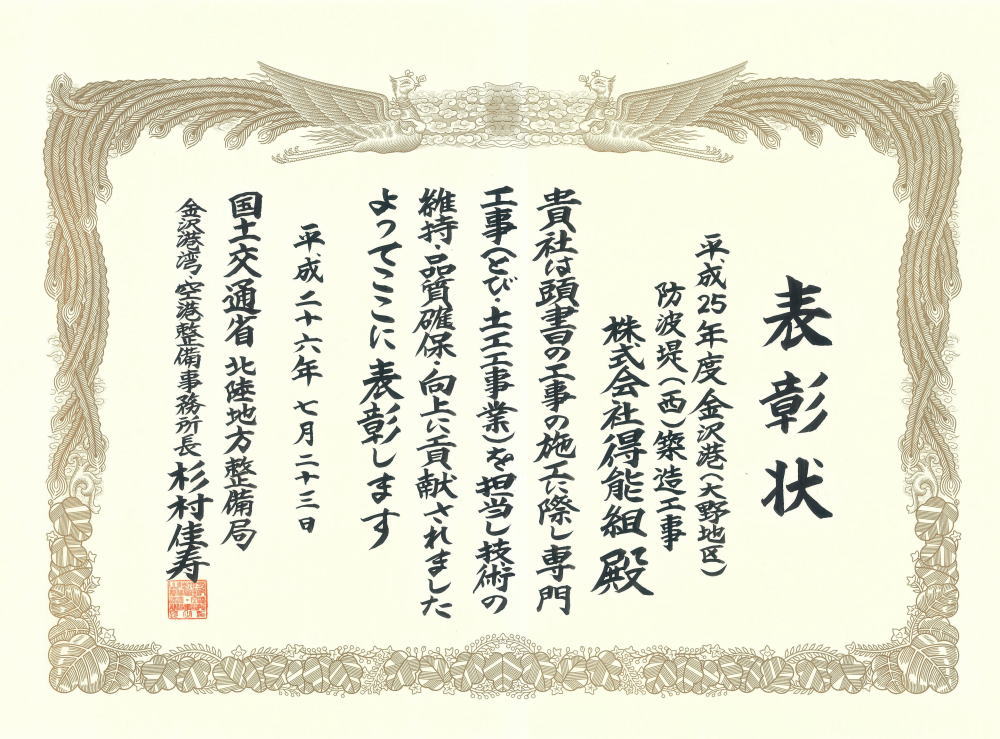 表彰状
平成25年度金沢港(大野地区)
防波堤(西)築造工事
株式会社得能組 殿
貴社は頭書の工事の施工に際し専門
工事(とび・土工工事業)を担当し技術の
維持・品質確保・向上に貢献されました
よってここに表彰します
平成二十六年七月二十三日
国土交通省 北陸地方整備局
金沢港湾・空港整備事務所長 杉村佳寿